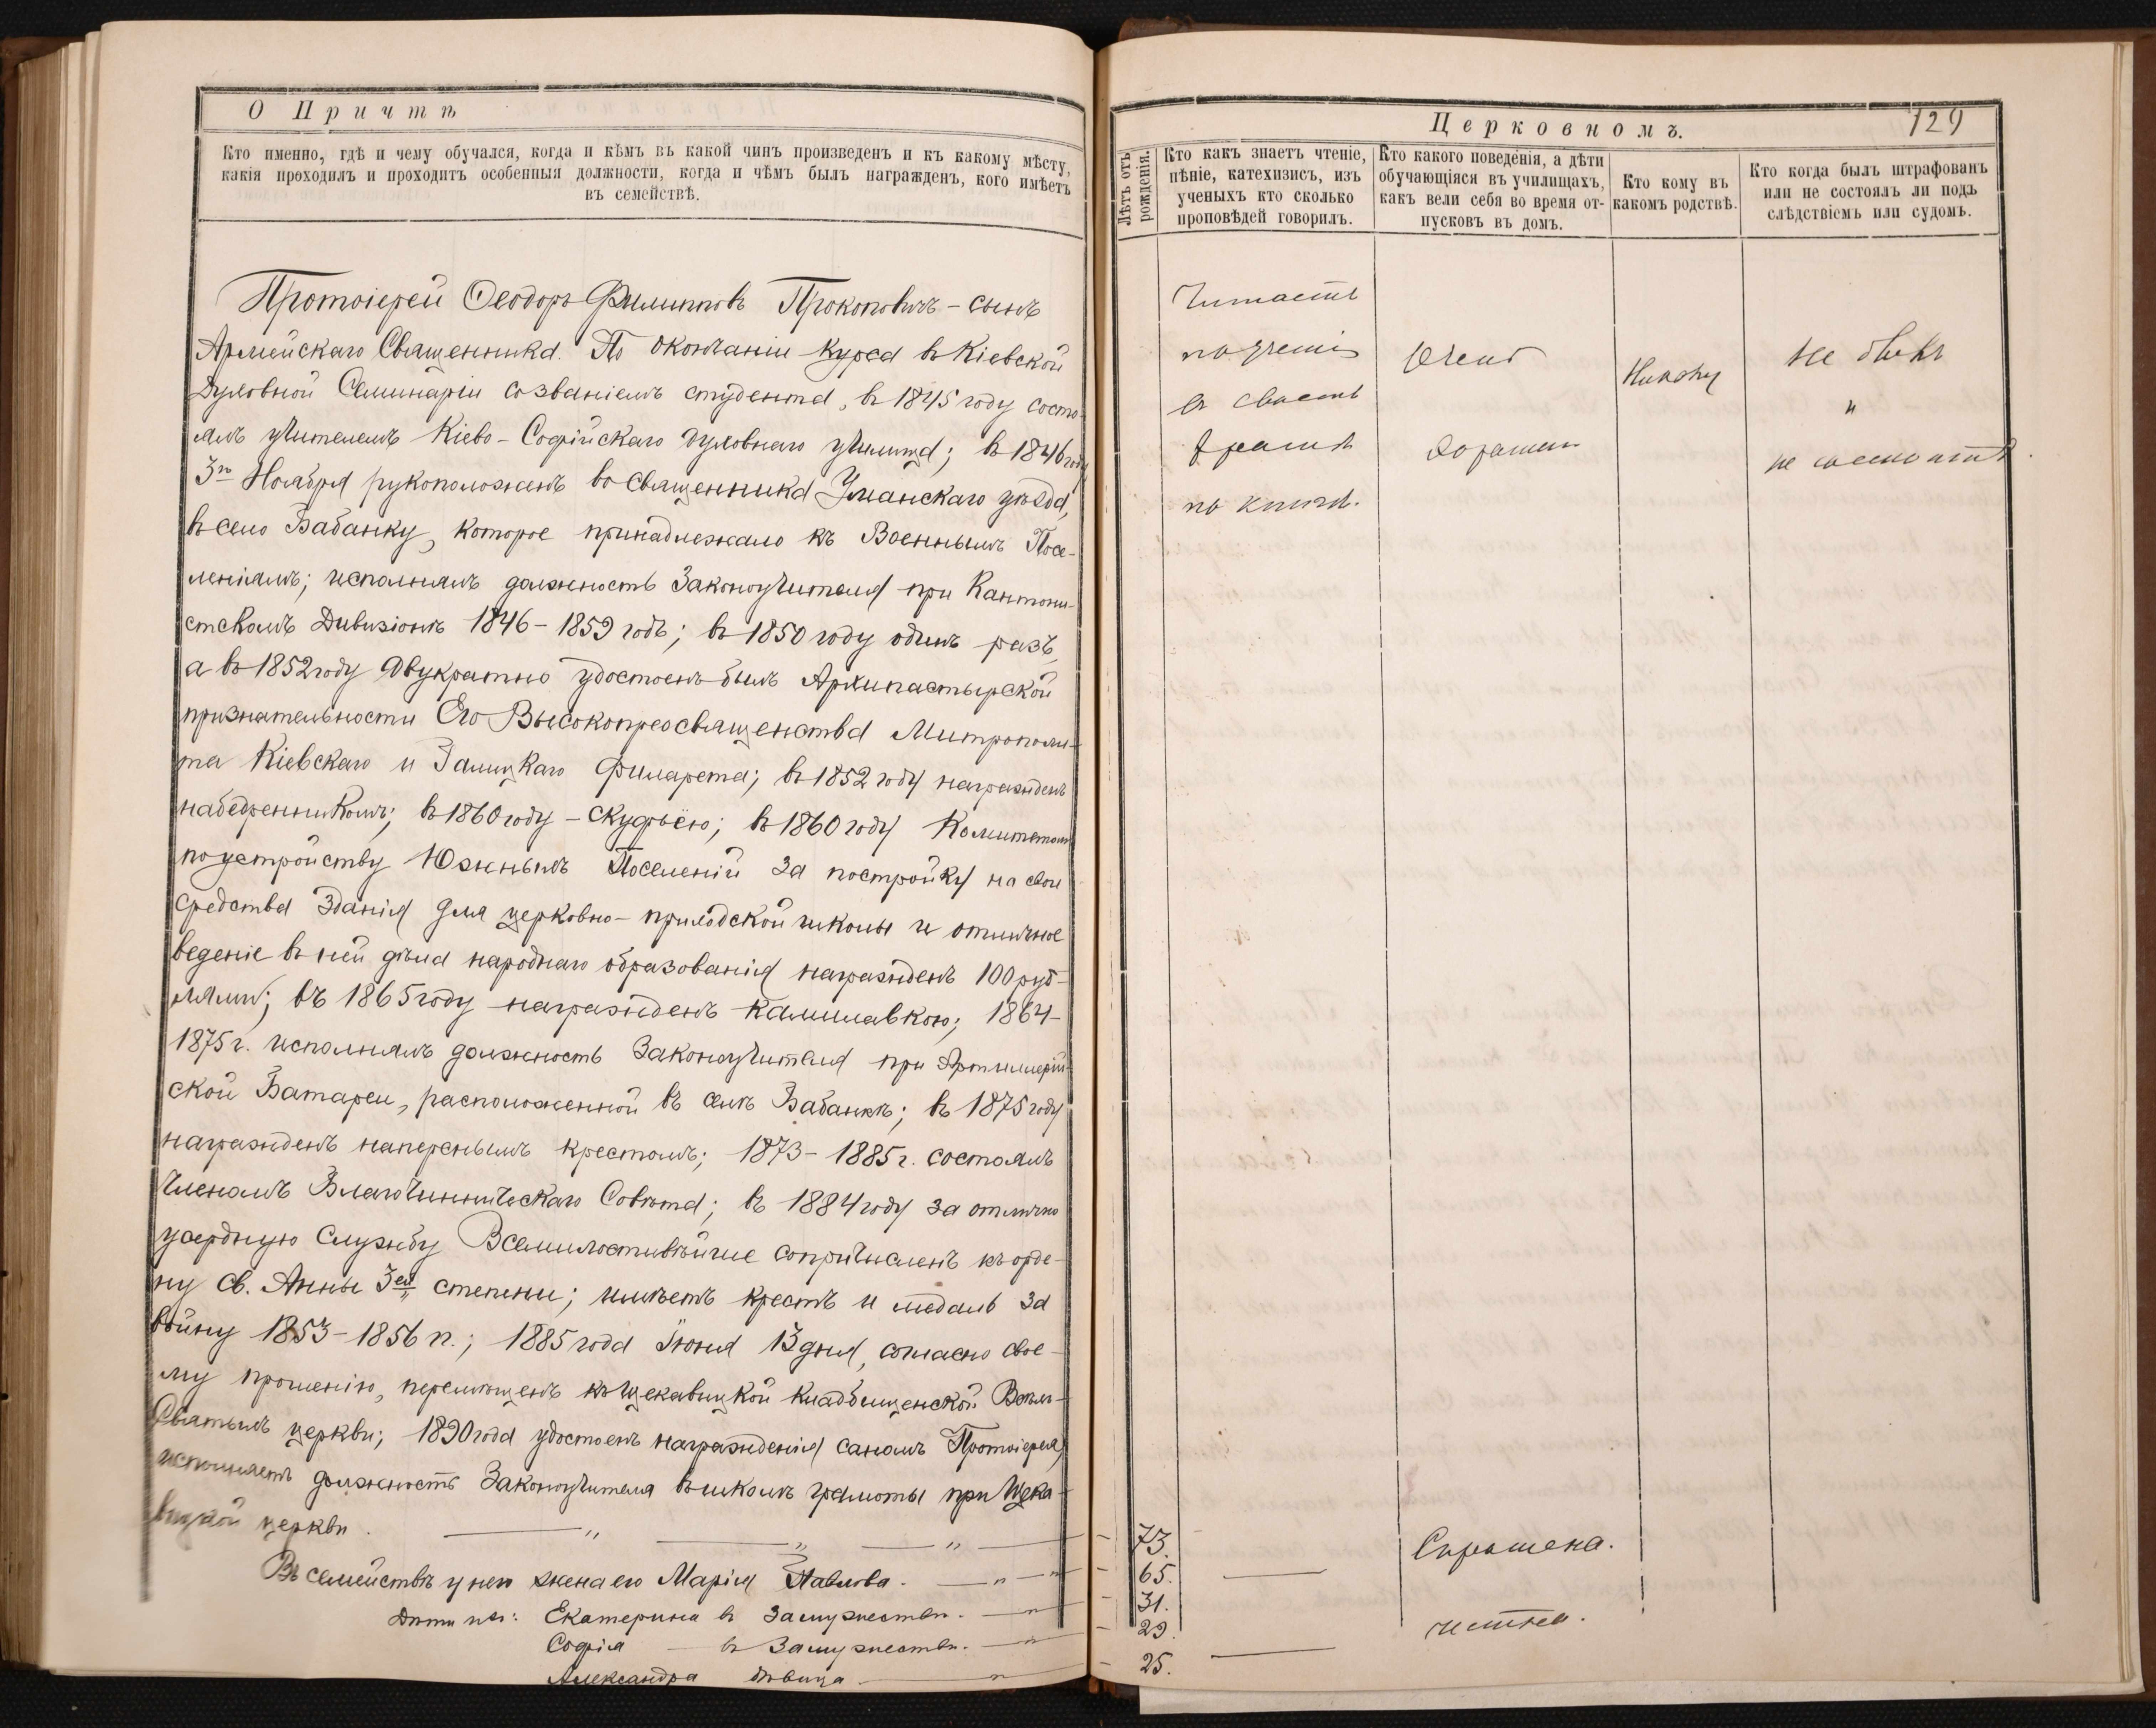 О Причтѣ
Кто именно, гдѣ и чему обучался, когда и кѣмъ въ какой чинъ произведенъ и къ какому мѣсту,
какія проходилъ и проходитъ особенныя должности, когда и чѣмъ былъ награжденъ, кого имѣетъ
въ семействѣ.
Протоіерей Ѳеодоръ Филипповъ Прокоповичъ – сынъ
Армейскаго Священника. По окончаніи курса въ Кіевской
Духовной Семинаріи со званіемъ студента, въ 1845 году состо-
ялъ учителемъ Кіево-Софійскаго духовнаго училища; въ 1846 году
3го Ноября рукоположенъ во Священника Уманскаго уѣзда,
въ село Бабанку, которое принадлежало къ Военнымъ Посе-
леніямъ; исполнялъ должность Законоучителя при Кантони-
стскомъ Дивизіонѣ 1846–1859 годъ; въ 1850 году одинъ разъ,
а въ 1852 году двукратно удостоенъ былъ Архипастырской
признательности Его Высокопреосвященства Митрополи-
та Кіевскаго и Галицкаго Филарета; въ 1852 году награжденъ
набедренникомъ; въ 1860 году – скуфьёю; въ 1860 году Комитетомъ
по устройству Южныхъ Поселеній за постройку на свои
средства зданія для церковно-приходской школы и отличное
веденіе въ ней дѣла народнаго образованія награжденъ 100 руб-
лями; въ 1865 году награжденъ камилавкою; 1864–
1875 г. исполнялъ должность Законоучителя при Артиллерій-
ской Батареи, расположенной въ селѣ Бабанкѣ; въ 1875 году
награжденъ наперснымъ крестомъ; 1873–1885 г. состоялъ
Членомъ Благочинническаго Совѣта; въ 1884 году за отлично
усердную службу Всемилостивѣйше сопричисленъ къ орде-
ну Св. Анны 3ей степени; имѣетъ крестъ и медаль за
войну 1853–1856 гг.; 1885 года Іюня 13 дня, согласно свое-
му прошенію, перемѣщенъ къ Щекавицкой Кладбищенской Всѣхъ-
Святыхъ церкви; 1890 года удостоенъ награжденія саномъ Протоіерея,
исполняетъ должность Законоучителя въ школѣ грамоты при Щека-
вицкой церкви. — " — " — " —
Въ семействѣ у него жена его Марія Павлова. — " — "
Дѣти ихъ: Екатерина въ замужествѣ. — "
Софія — въ замужествѣ. — "
Александра дѣвица — "
Церковномъ.
129
Лѣтъ отъ
рожденія.
Кто какъ знаетъ чтеніе,
пѣніе, катехизисъ, изъ
ученыхъ кто сколько
проповѣдей говорилъ.
Кто какого поведенія, а дѣти
обучающіяся въ училищахъ,
какъ вели себя во время от-
пусковъ въ домъ.
Кто кому въ
какомъ родствѣ.
Кто когда былъ штрафованъ
или не состоялъ ли подъ
слѣдствіемъ или судомъ.
Читаетъ
поученія
въ своемъ
храмѣ
по книгѣ.
Очень
хорошаго
Никому
не былъ
и
не состоитъ.
73.
65.
31.
29.
25.